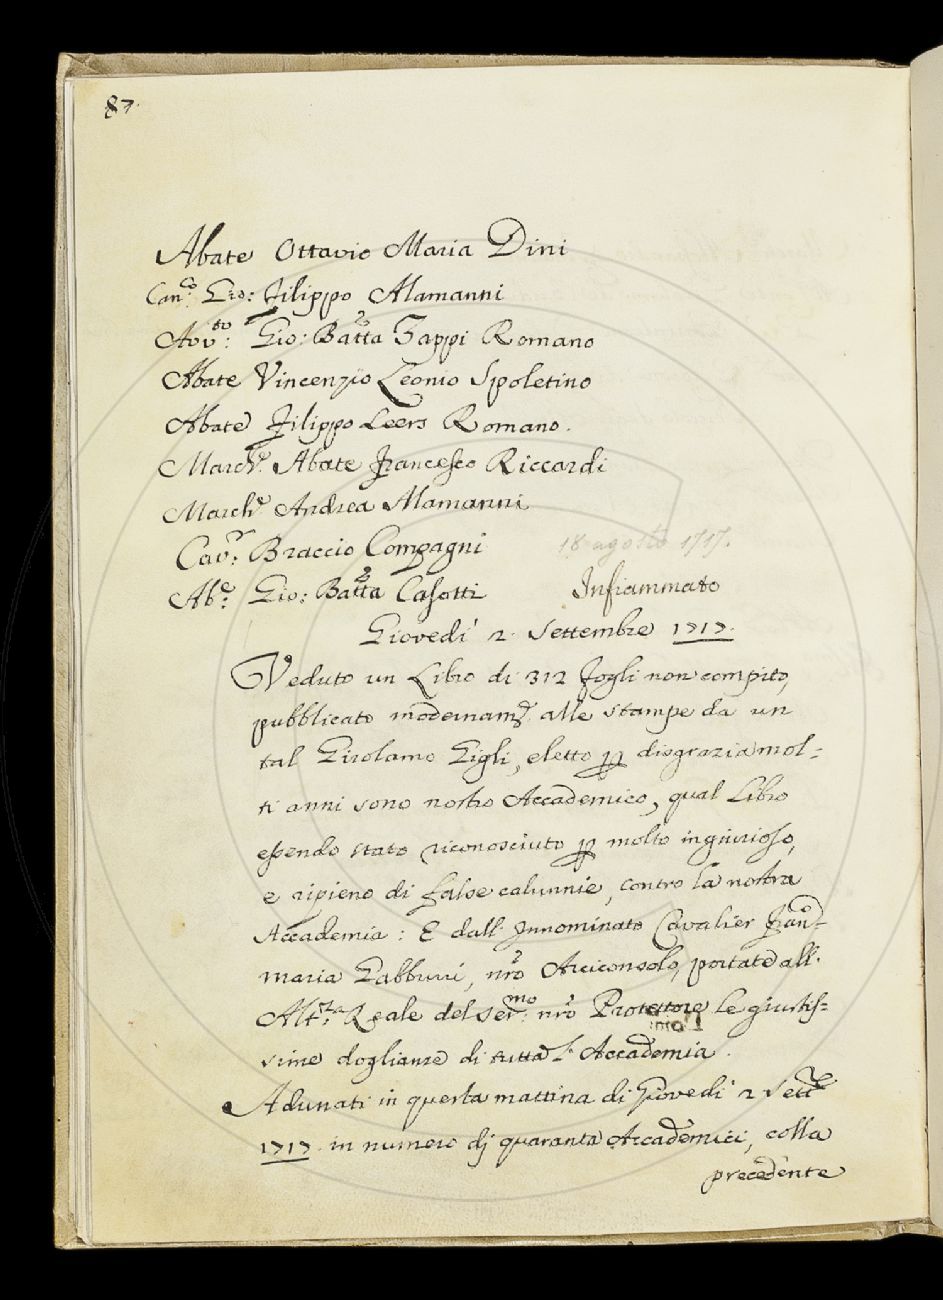 87.
Abate Ottavio Maria Dini
Can.co Gio: Filippo Alamanni
Avv.to: Gio: Batta Zappi Romano
Abate Vincenzio Leonio Spoletino
Abate Filippo Leers Romano.
March.e Abate Francesco Riccardi
March.e Andrea Alamanni
Cav.r: Braccio Compagni
18 agosto 1717.
Ab.e: Gio: Batta Casotti
Infiammato
Giovedi 2. Settembre 1717.
Veduto un Libro di 312 fogli non compito,
pubblicato modernam.e alle stampe da un
tal Girolamo Gigli, eletto p disgrazia mol=
ti anni sono nostro Accademico, qual Libro
essendo stato riconosciuto p molto ingiurioso,
e ripieno di false calunnie, contro la nostra
Accademia: E dall' Innominato Cavalier Fran.co=
maria Gabburri, nr̃o Arciconsolo, portate all'
Alt.za Reale del Ser.mo: nr̃o Protettore le giustis=
sime doglianze di tutta l' Accademia.
Adunati in questa mattina di Giovedi 2 Sett.e
1717. in numero dj quaranta Accademici, colla
precedente